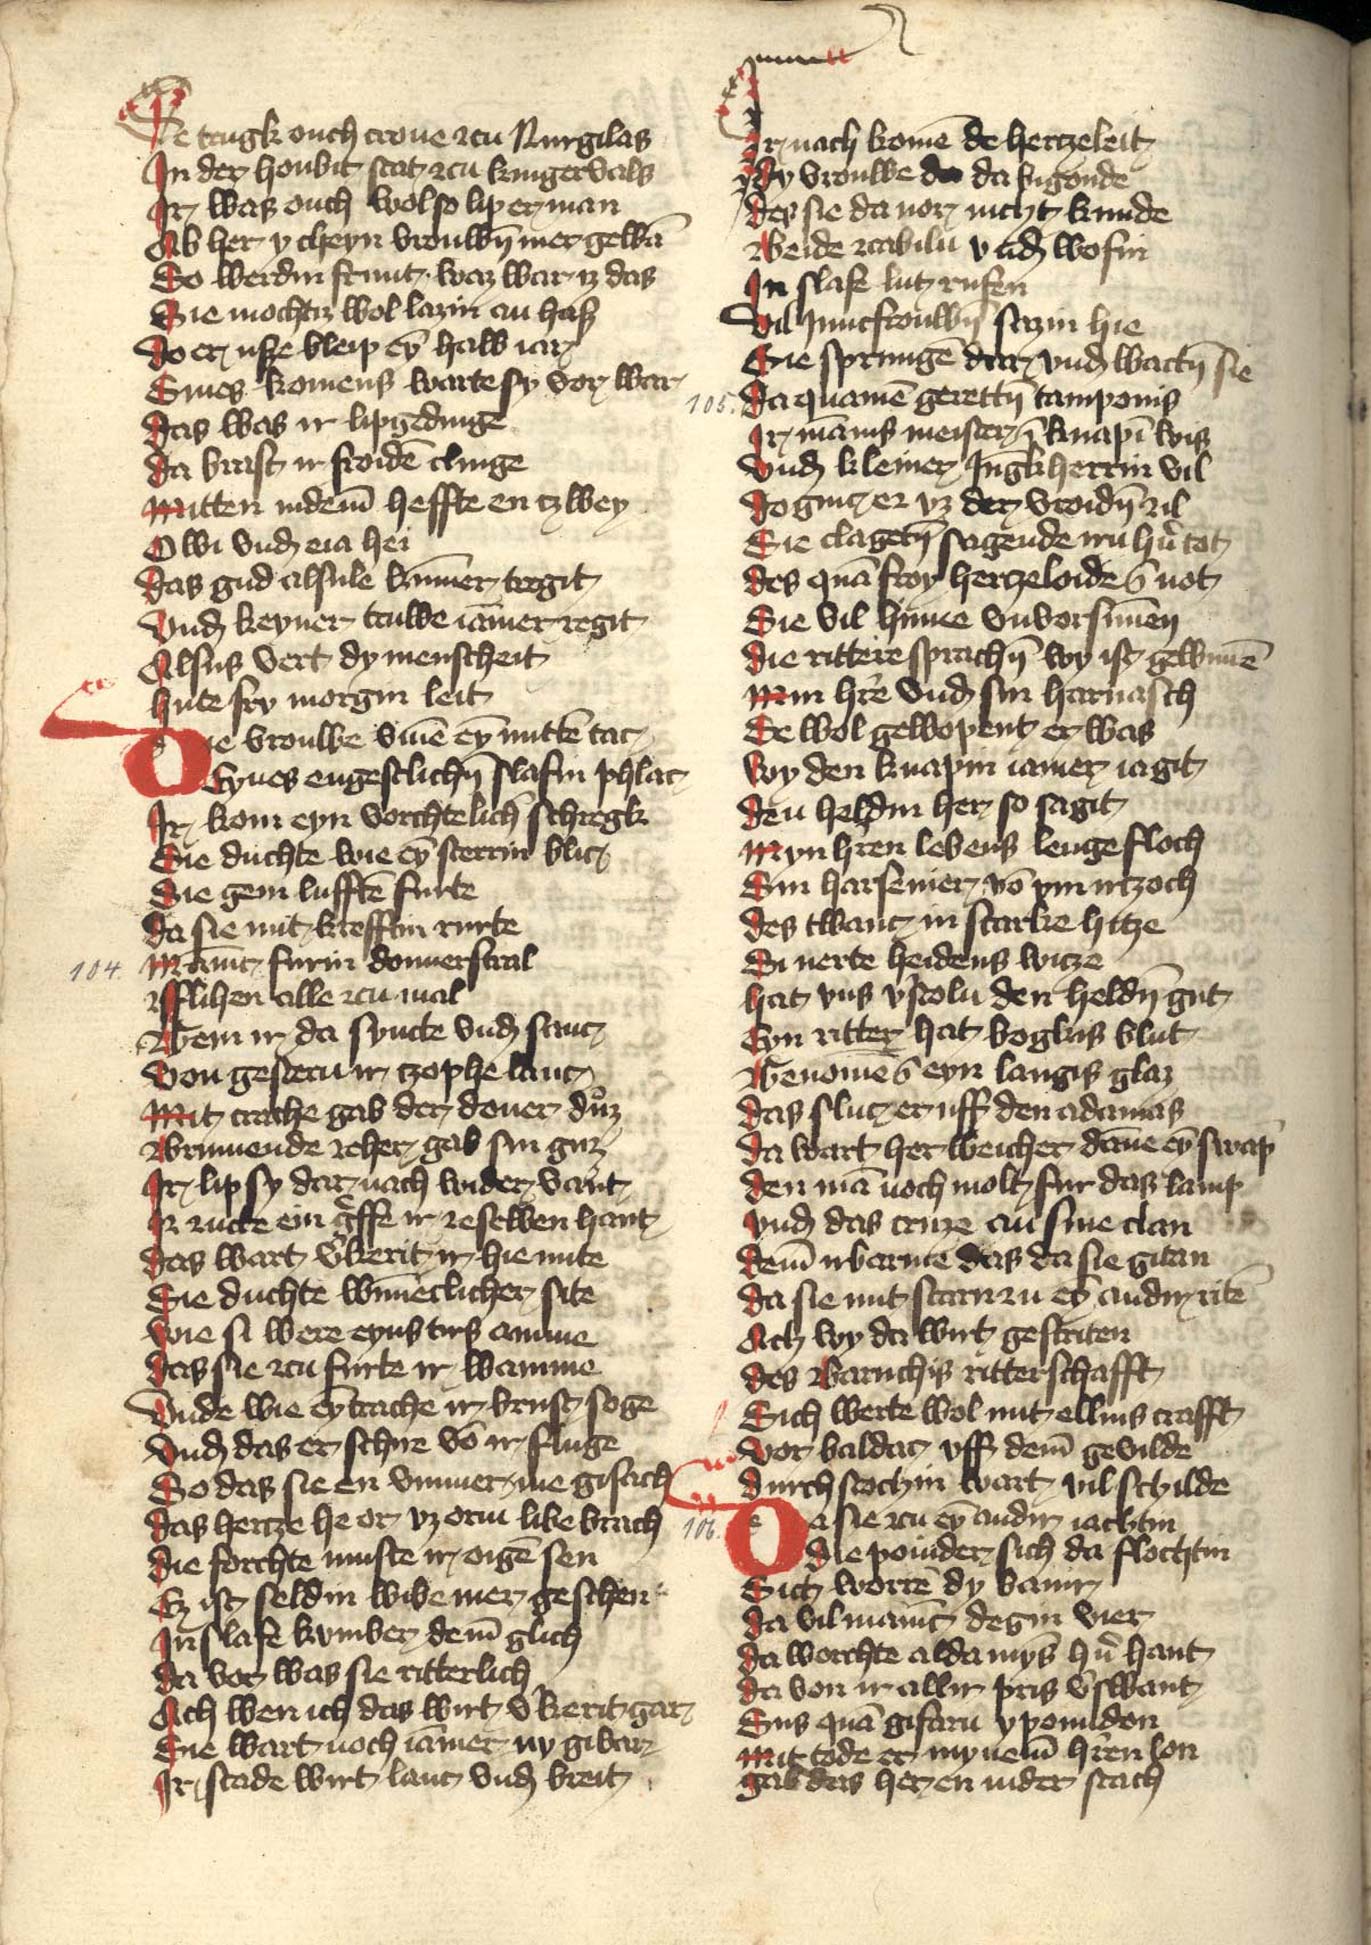 Er trugk ouch crone zcu Nurgilas
In der houbit stat zcu kingervals
Ir was ouch wol so lip er man
Ab her ycheyn vrouwē mer gewā
So werdin frunt waz war iz das
Sie mochtiz wol lazin an haß
Do er uße bleip eȳ halb iar
Sines komens warte sy vor war
das was ir lipgedinge
da brast ir froidē clinge
Mitten indem̄ heffte en tzwey
Owi vnd eia hei
das gud alsule kūmer tregit
vnd keyner truwe iāmer regit
Alsus vert dy menscheit
hute fro morgin leit
Die vrouwe vm̄e eȳ mittē tac
Eynes engestlichē slafin phlac
Ir kom eyn vorchtelich schregk
Sie duchte wie eȳ sterrin blic
Sie gein lufftē furte
da sie mit krefftin rurte
Mānc furin donnerstral
Ufflihen alle zcu mal
Kem ir da syncte vnd sanc
von gestern ir tzophe lanc
Mit crache gab der doner duͦz
Brinnende zcher gab sin guz
Ir lip sy dar nach wider vant
Ir zucte ein gͤffe ir zeselwen hant
das wart v̾kerit ir hie mite
Sie duchte wūneclicher site
wie si were eyns tirs amme
das sie zcu furte ir wamme
Vnde wie eȳ trache ir brust soge
vnd das er schire vō ir fluge
So das sie en vmmer me gisach
das hertze he or vz orm libe brach
die forchte muste ir oigē sen
Ez ist seldin wibe mer geschen
In slafe kumber dem̄ glich
da vor was sie ritterlich
Ach wen ich das wirt v̾kerit gar
Sie wart noch iāmer ny gibar
Ir stade wirt lanc vnd breit
Ir nach komē de hertzeleit
Dy vrouwe da bigonde
des sie da vor nicht kunde
Beide zcabiln vnd wofin
In slafe lut rufen
Vil iuncfrouwē sazin hie
Sie sprungē dar vnd wactē sie
105. da quamē gerettē tamponis
Ir mānis meister knapē wis
vnd kleiner Iūgkherrin vil
do ginc er vz der vroidē zil
Sie clagetē sagende irn h̾n tot
des quā froy hertzeloide ī not
Sie vil hinne vnvorsunnen
die rittere sprachē wy ist gewūnē
Min h̾re vnd sin harnasch
So wol gewopent er was
wy den knapin iamer iagit
den heldin her so sagit
Myn h̾ren lebens lenge floch
Sin harsenier vō ym irtzoch
des twanc in starke hitze
Di nerte heidens witze
hat vns v̾stoln den heldē gut
Eyn ritter hat bogkis blut
Genomē ī eyn langis glaz
das sluc er uff den adamas
da wart her weicher dāne eȳ swāp
den mā noch molt fur das lamp
vnd das cruze an sine clan
dem̄ irbarme das da sie gitan
da sie mit scarn zu eȳ andir ritē
Ach wy da wirt gestriten
des Baruchis ritterschafft
Sich werte wol mit ellins crafft
vor baldac vff dem̄ gevilde
durch stochin wart vil schilde
106. Da sie zcu eȳ andir iachtin
die poinder sich da flochtin
Sich worrē dy banir
da vil manic degin vier
da worchte alda mȳs h̾n hant
da von ir allir pris v̾swant
Sus quā gifarn ypomidon
Mit tode er mynem̄ h̾ren lon
gab das her en nider stach
104.